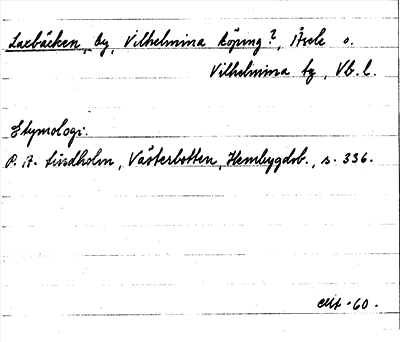 Laxbäcken, by, Vilhelmina köping?, Åsele o.
Vilhelmina tg, Vb. l.
Etymologi.
P. A. Lindholm, Västerbotten, Hembygdsb., s. 336.
-60.